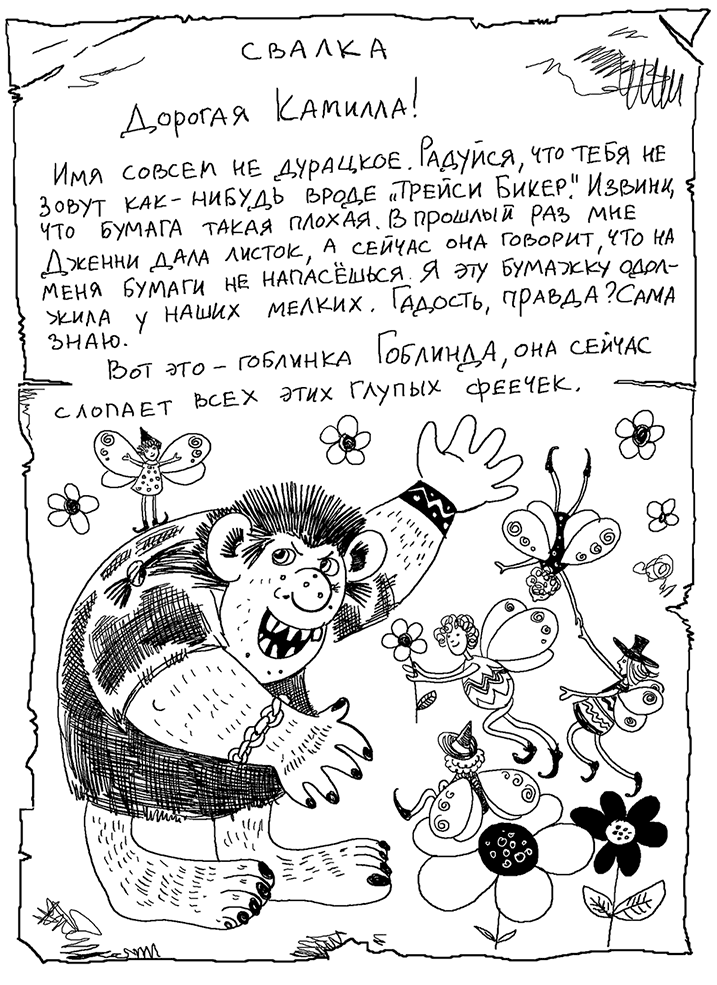 СВАЛКА
Дорогая Камилла!
Имя совсем не дурацкое. Радуйся, что тебя не
зовут как-нибудь вроде „Трейси Бикер". Извини,
что бумага такая плохая. В прошлый раз мне
Дженни дала листок, а сейчас она говорит, что на
меня бумаги не напасёшься. Я эту бумажку одол-
жила у наших мелких. Гадость, правда? Сама
знаю.
Вот это – гоблинка Гоблинда, она сейчас
слопает всех этих глупых феечек.